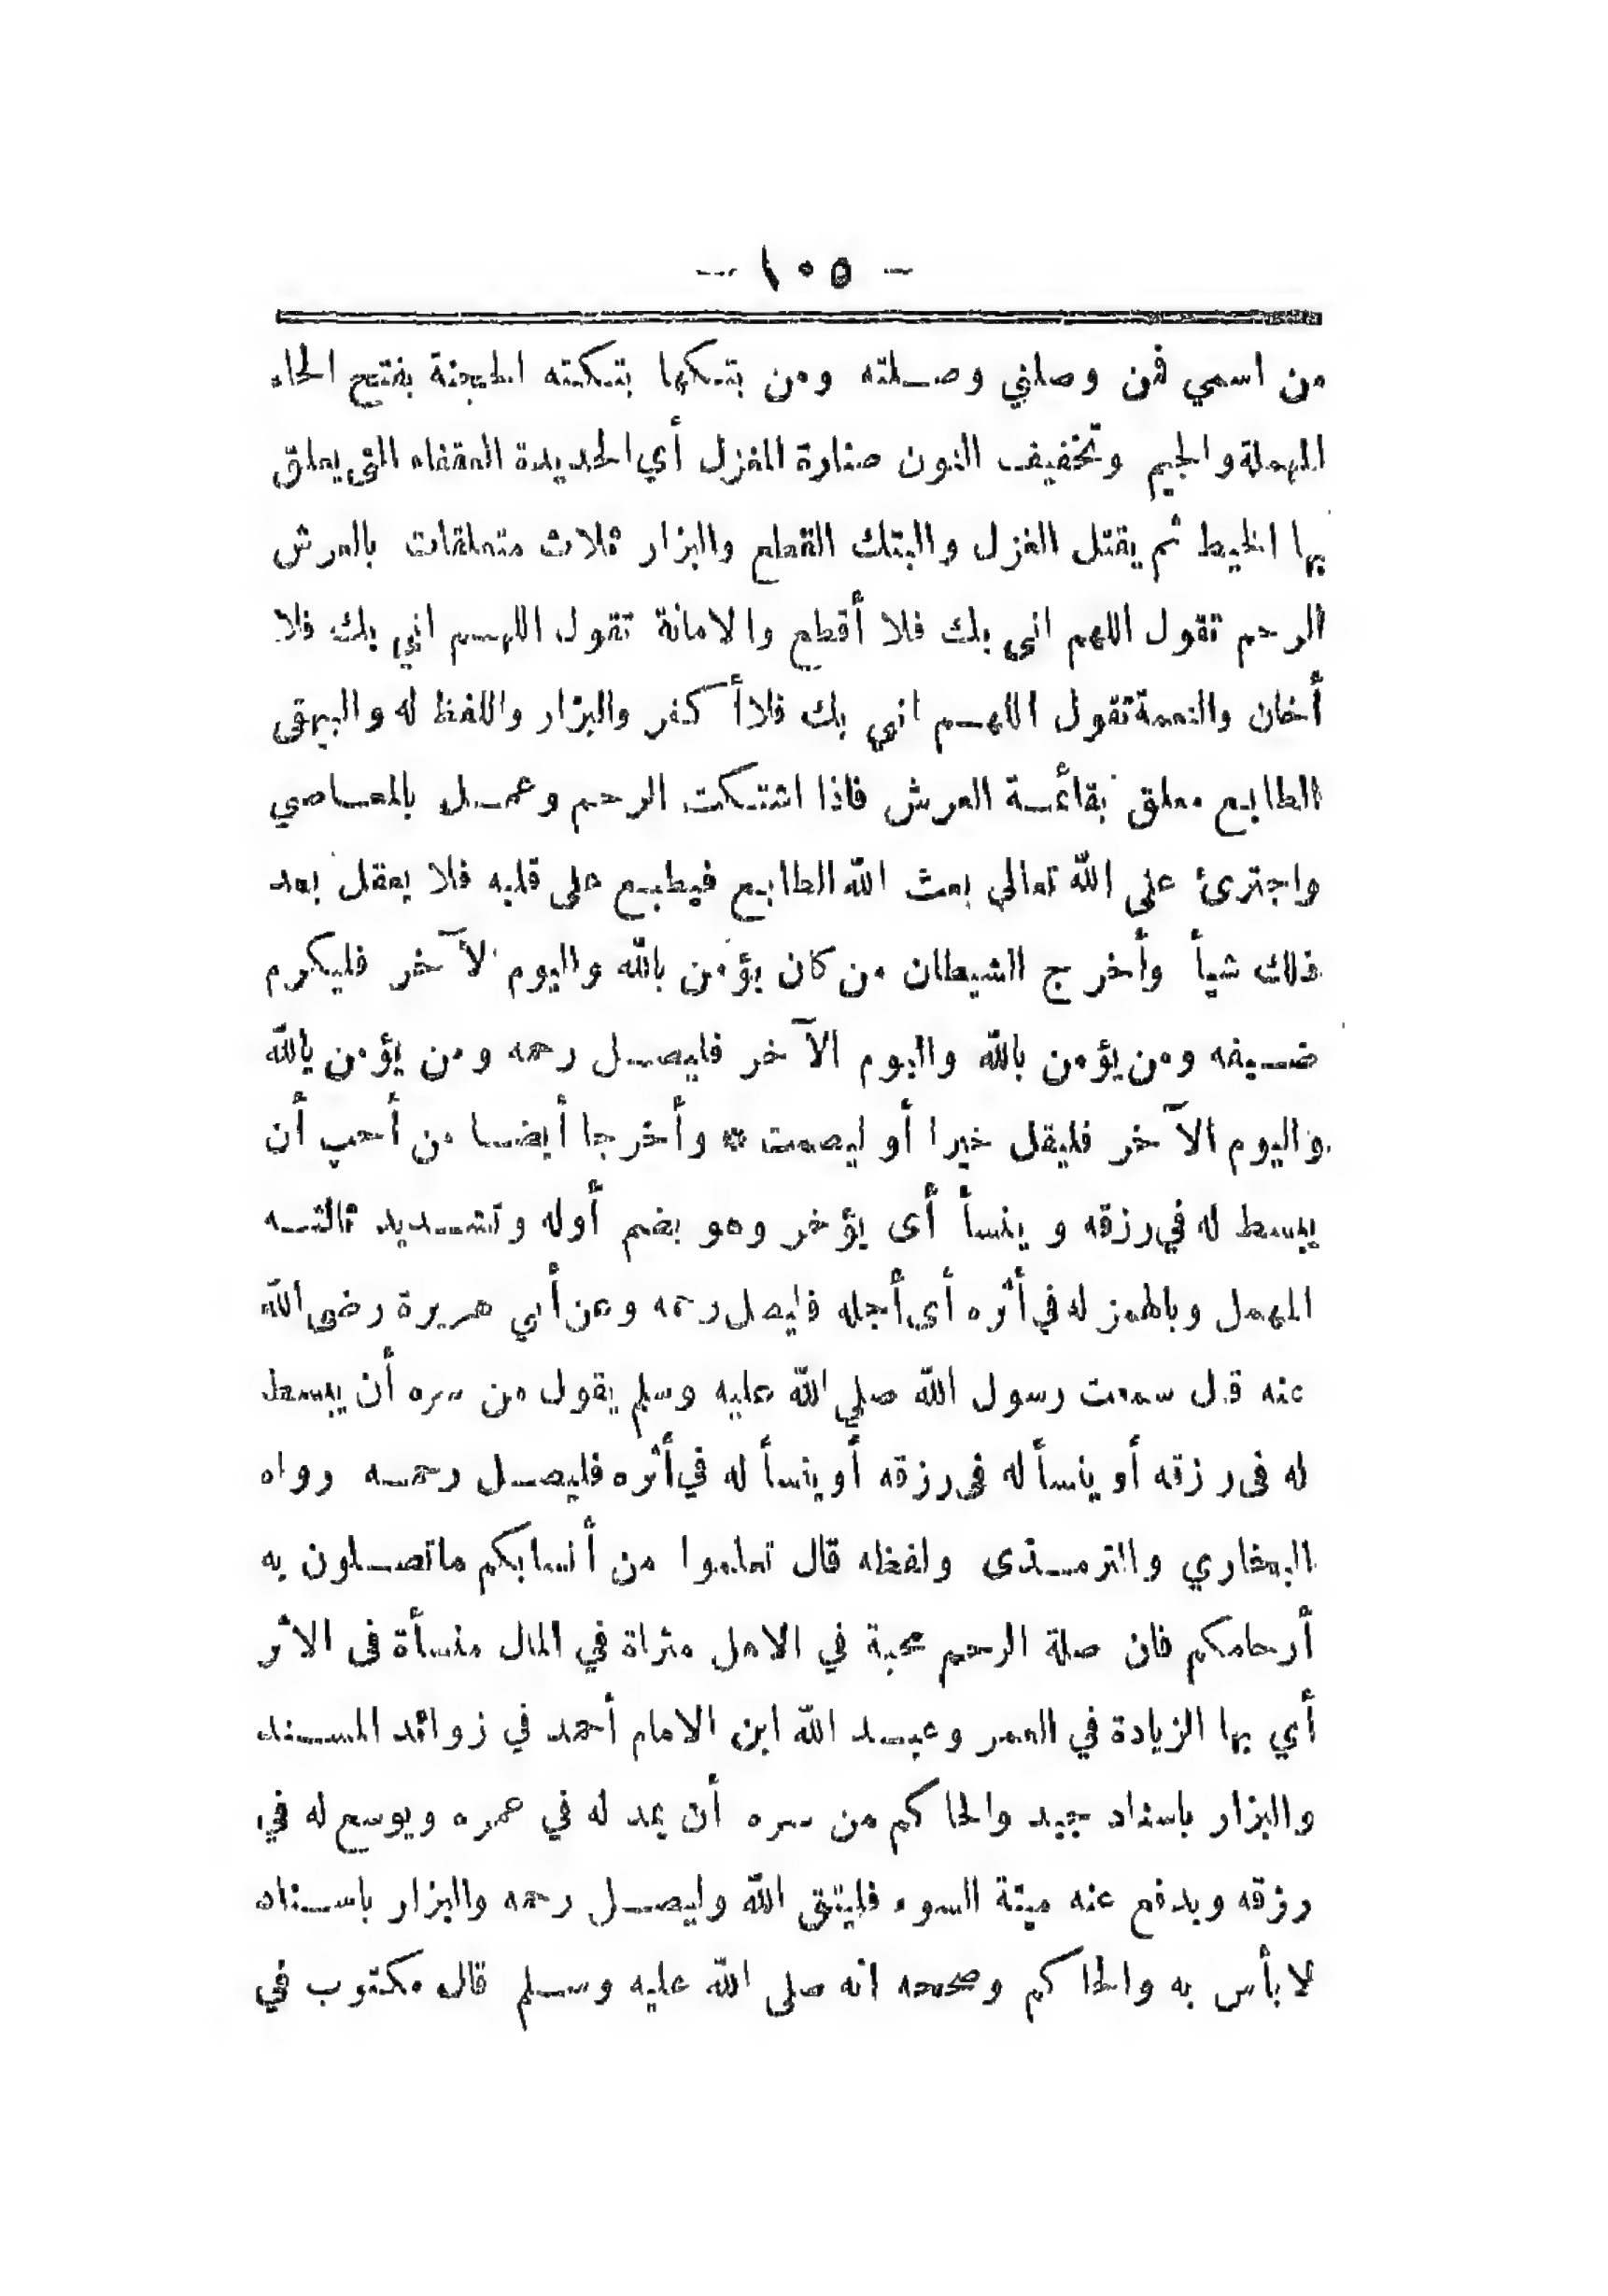 - ١٠٥ -
من اسمي فمن وصلني وصلته ومن بتكها بتكته الحجنة بفتح الحاء
المهملة والجيم وتخفيف النون صنارة المغزل أي الحديدة العقفاء التي يعلق
بها الخيط ثم يفتل الغزل والبتك القطع والبزار ثلاث متعلقات بالعرش
الرحم تقول اللهم انى بك فلا أقطع والامانة تقول اللهم اني بك فلا
أخان والنعمة تقول اللهم اني بك فلا أكفر والبزار واللفظ له والبيهقى
الطابع معلق بقائمة العرش فاذا اشتكت الرحم وعمل بالمعاصي
واجترئ على الله تعالي بعث الله الطابع فيطبع على قلبه فلا يعقل بعد
ذلك شيأ وأخرج الشيطان من كان يؤمن بالله واليوم الآخر فليكرم
ضيفه ومن يؤمن بالله واليوم الآخر فليصل رحمه ومن يؤمن بالله
واليوم الآخر فليقل خيرا أو ليصمت * وأخرجا أيضا من أحب أن
يبسط له في رزقه وينسأ أى يؤخر وهو بضم أوله وتشديد ثالثه
المهمل وبالهمز له في أثره أي أجله فليصل رحمه وعن أبي هريرة رضى الله
عنه قال سمعت رسول الله صلي الله عليه وسلم يقول من سره أن يبسط
له فى رزقه أو ينسأ له فى رزقه أو ينسأ له في أثره فليصل رحمه رواه
البخاري والترمذى ولفظه قال تعلموا من أنسابكم ما تصلون به
أرحامكم فان صلة الرحم محبة في الاهل مثراة في المال منسأة فى الاثر
أي بها الزيادة في العمر وعبد الله ابن الامام أحمد في زوائد المسند
والبزار باسناد جيد والحاكم من سره أن يمد له في عمره ويوسع له في
رزقه ويدفع عنه ميتة السوء فليتق الله وليصل رحمه والبزار باسناد
لا بأس به والحاكم وصححه انه صلى الله عليه وسلم قال مكتوب في